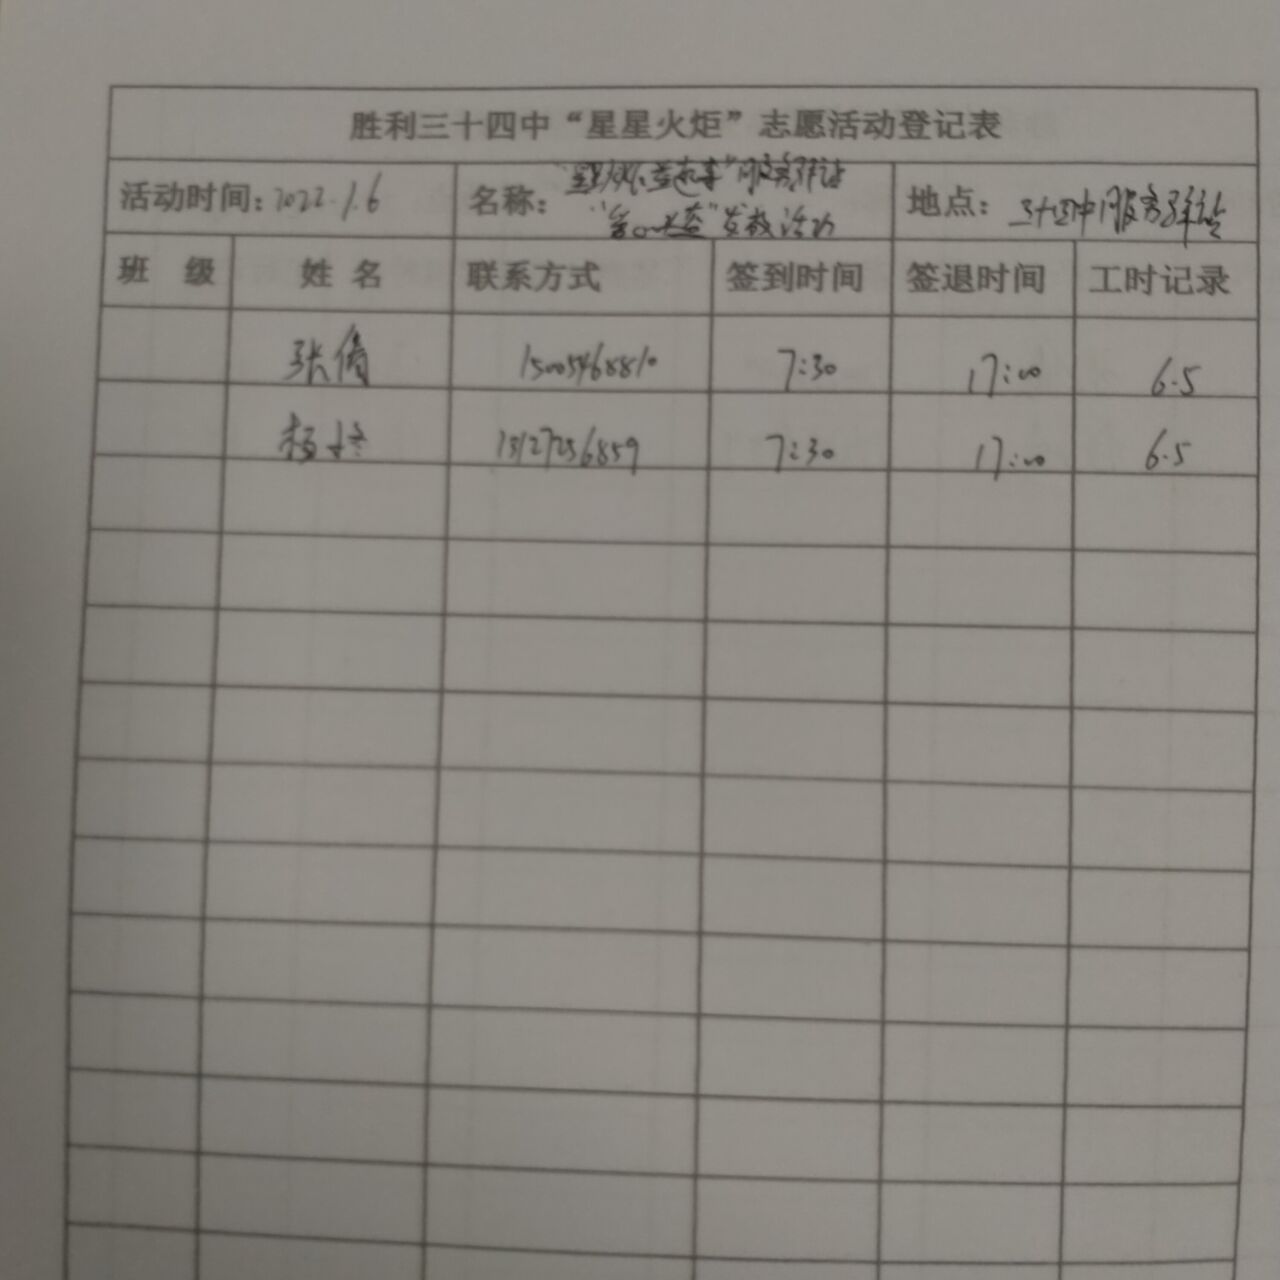 胜利三十四中“星星火炬”志愿活动登记表
活动时间：2022.1.6
名称： 服务驿站
发放活动
地点： 三十四中服务驿站
班 级 姓 名 联系方式 签到时间 签退时间 工时记录
张倩 15005468810 7:30 17:00 6.5
杨 7:30 17:00 6.5